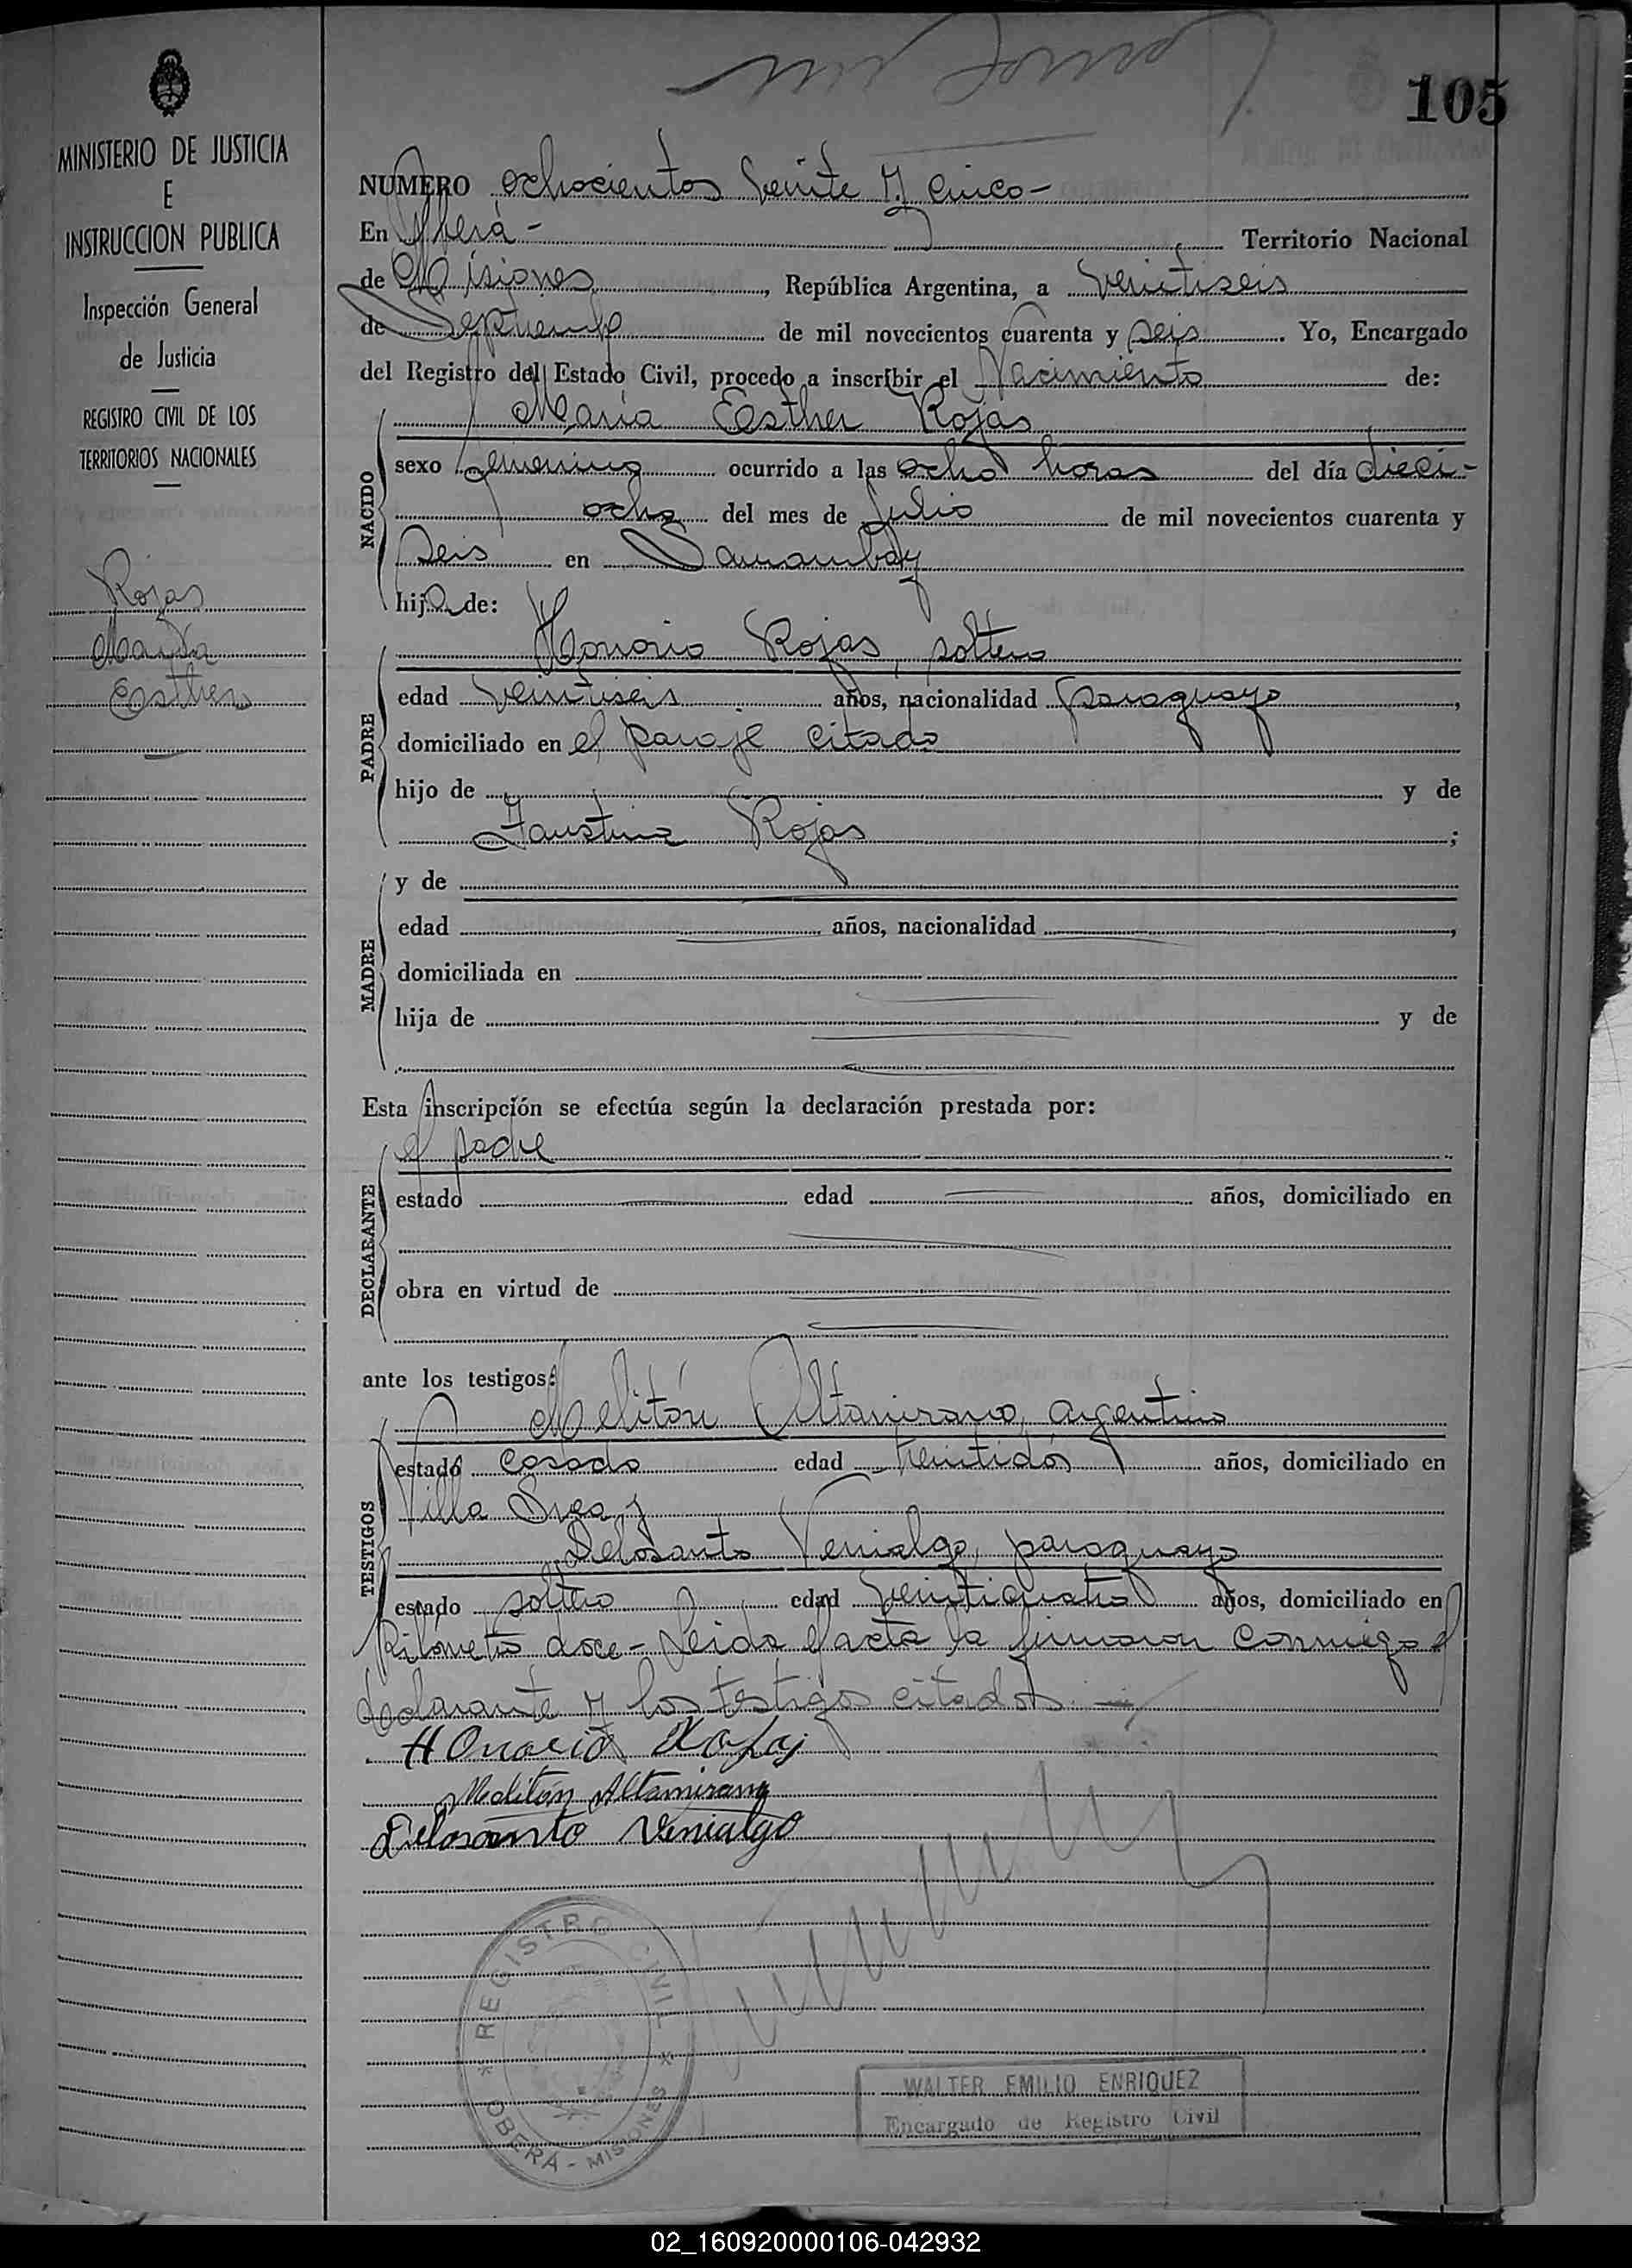 105
MINISTERIO DE JUSTICIA
E
INSTRUCCION PUBLICA
Inspección General
de Justicia
REGISTRO CIVIL DE LOS
TERRITORIOS NACIONALES
Rojas
María
Esther
NUMERO ochocientos veinte y cinco-
En Oberá- Territorio Nacional
de Misiones, República Argentina, a veintiseis
de Septiembre de mil novecientos cuarenta y seis. Yo, Encargado
del Registro del Estado Civil, procedo a inscribir el Nacimiento de:
María Esther Rojas
NACIDO
sexo femenino ocurrido a las ocho horas del día dieci-
ocho del mes de Julio de mil novecientos cuarenta y
seis en Samambay
hija de:
Honorio Rojas, soltero
PADRE
edad veintiseis años, nacionalidad paraguayo,
domiciliado en el paraje citado
hijo de y de
Faustina Rojas;
MADRE
y de
edad años, nacionalidad,
domiciliada en
hija de y de
Esta inscripción se efectúa según la declaración prestada por:
el padre
DECLARANTE
estado edad años, domiciliado en
obra en virtud de
ante los testigos:
Melitón Altamirano, argentino
TESTIGOS
estado casado edad treintidós años, domiciliado en
Villa Svea y
Delosanto Venialgo, paraguayo
estado soltero edad veinticuatro años, domiciliado en
Kilómetro doce- Leida el acta la firmaron conmigo el
declarante y los testigos citados.-
Honorio Rojas
Melitón Altamirano
Delosanto Venialgo
REGISTRO CIVIL
OBERA - MISIONES
WALTER EMILIO ENRIQUEZ
Encargado de Registro Civil
02_160920000106-042932